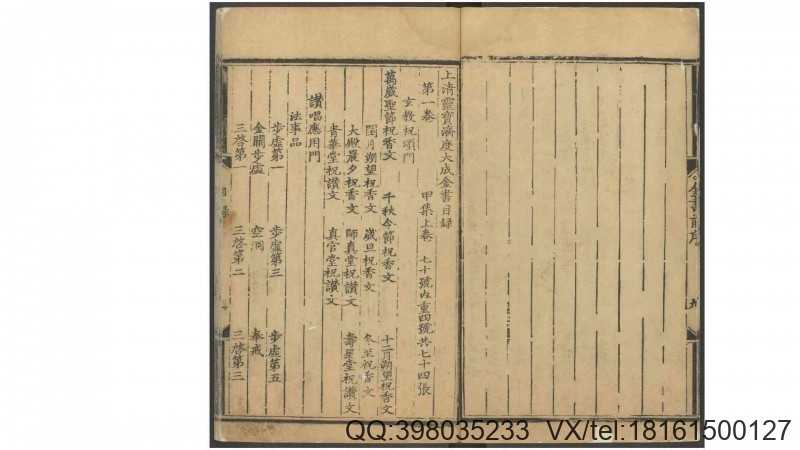 上清靈寶濟度大成金書目録
第一卷 甲集上卷 七十號內重四號共七十四張
玄教祝頌門
萬歲聖節祝香文 千秋令節祝香文 十二月朔望祝香文
閏月朔望祝香文 歲旦祝香文 冬至祝香文
大殿晨夕祝香文 師真堂祝讚文 壽星堂祝讚文
青華堂祝讚文 真官堂祝讚文
讚唱應用門
法事品
步虛第一 步虛第三 步虛第五
金闕步虛 空洞 奉戒
三啓第一 三啓第二 三啓第三
QQ:398035233 VX/tel:18161500127